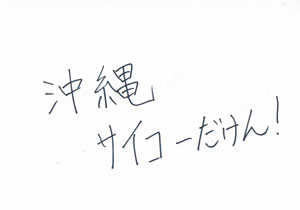 沖縄
サイコーだけん!